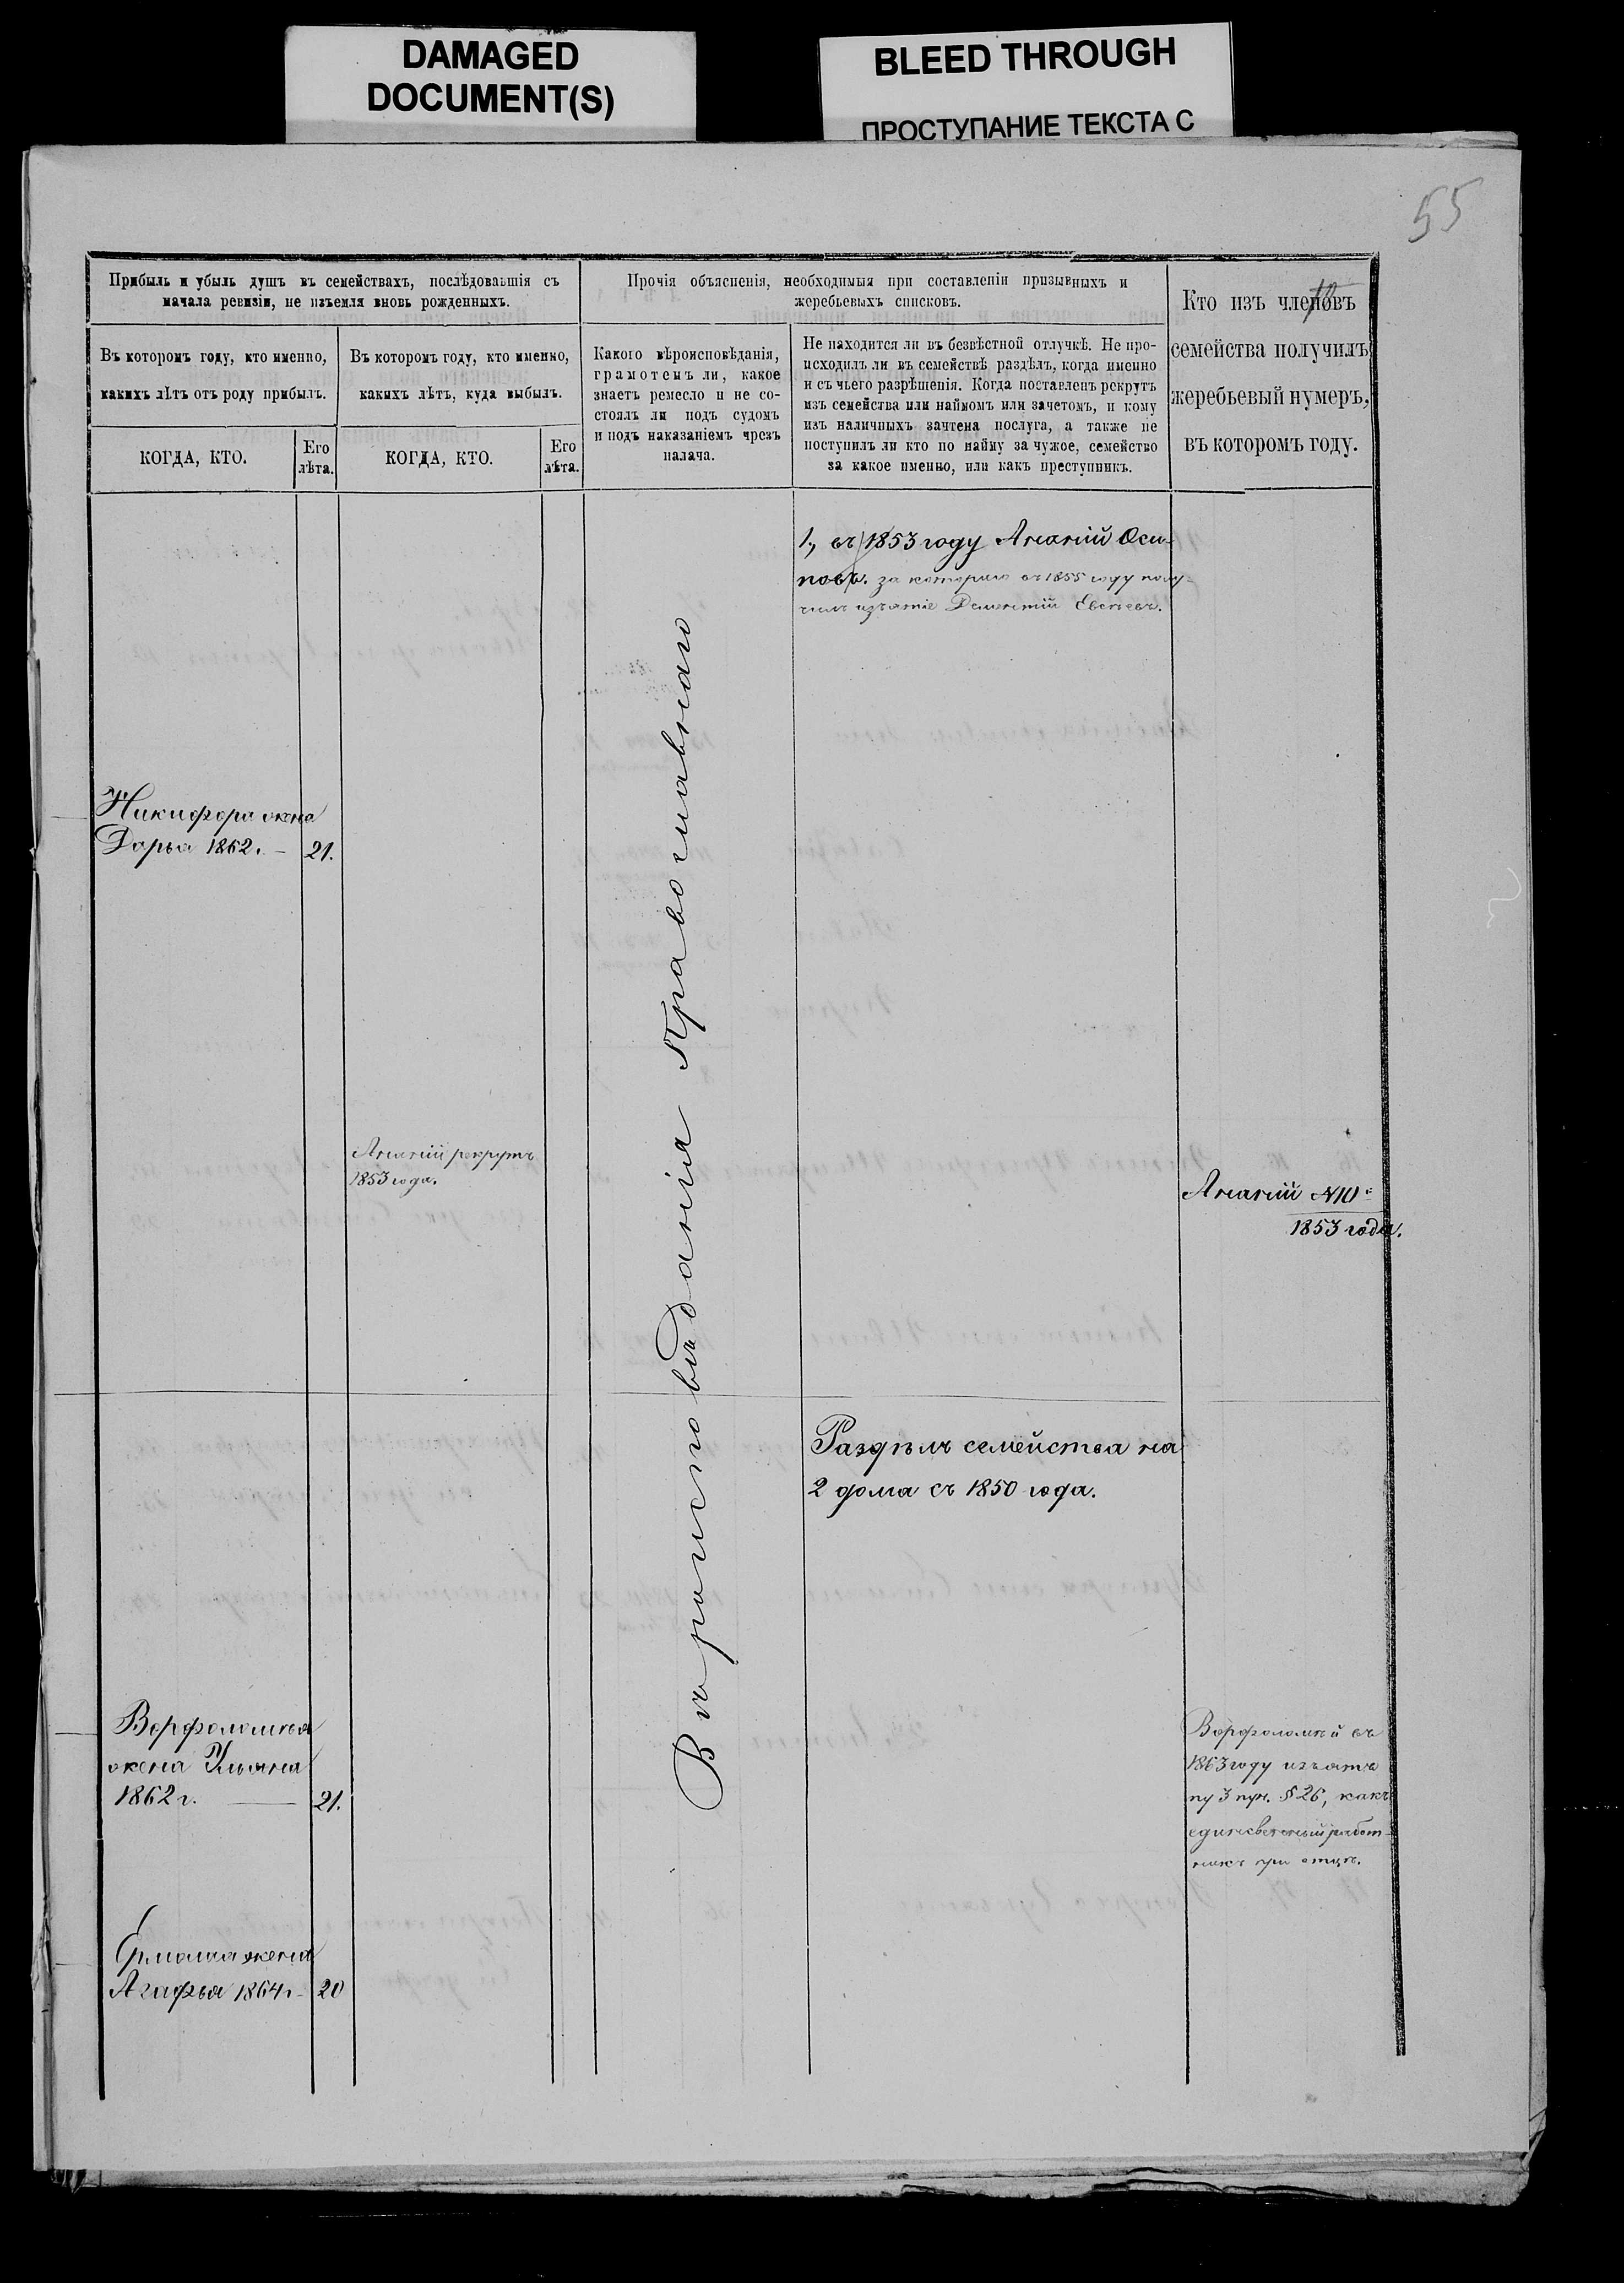 DAMAGED
DOCUMENT(S)
BLEED THROUGH
ПРОСТУПАНИЕ ТЕКСТА С
55
Прибыль и убыль душъ въ семействахъ, послѣдовавшія съ
начала ревизіи, не изъемля вновь рожденныхъ.
Въ которомъ году, кто именно,
какихъ лѣтъ отъ роду прибылъ.
Въ которомъ году, кто именно,
какихъ лѣтъ, куда выбылъ.
КОГДА, КТО.
Его
лѣта.
КОГДА, КТО.
Его
лѣта.
Прочія объясненія, необходимыя при составленіи призывныхъ и
жеребьевыхъ списковъ.
Какого вѣроисповѣданія,
грамотенъ ли, какое
знаетъ ремесло и не со-
стоялъ ли подъ судомъ
и подъ наказаніемъ чрезъ
палача.
Не находится ли въ безвѣстной отлучкѣ. Не про-
исходилъ ли въ семействѣ раздѣлъ, когда именно
и съ чьего разрѣшенія. Когда поставленъ рекрутъ
изъ семейства или наймомъ или зачетомъ, и кому
изъ наличныхъ зачтена послуга, а также не
поступилъ ли кто по найму за чужое, семейство
за какое именно, или какъ преступникъ.
Кто изъ членовъ
семейства получилъ
жеребьевый нумеръ,
въ которомъ году.
1., въ 1853 году Ананій Оси-
повъ. за котораго въ 1855 году полу-
чилъ изъятіе Дементій Евсѣевъ.
Никифора жена
Дарья 1862. – 21.
Ананій рекрутъ
1853 года.
Ананій №10
1853 года.
Вѣроисповѣданія Православнаго
Раздѣлъ семейства на
2 дома съ 1850 года.
Ворфоломея
жена Ульяна
1862 г. — 21.
Ворфоломѣй въ
1863 году изъятъ
по 3 пун. § 26, какъ
единственный работ-
никъ при отцѣ.
Ермолая жена
Агафья 1864 г – 20